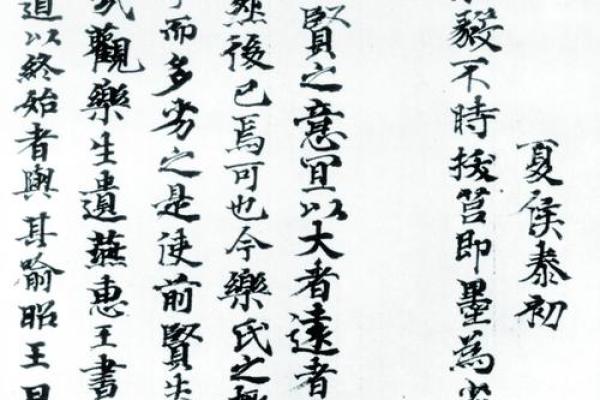 夏侯泰初
毅不時拔莒即墨為
賢之意宜以大者遠者
然後已焉可也今樂氏之
而多劣之是使前賢失
哉觀樂生遺燕惠王書
道以終始者與其喻昭王曰